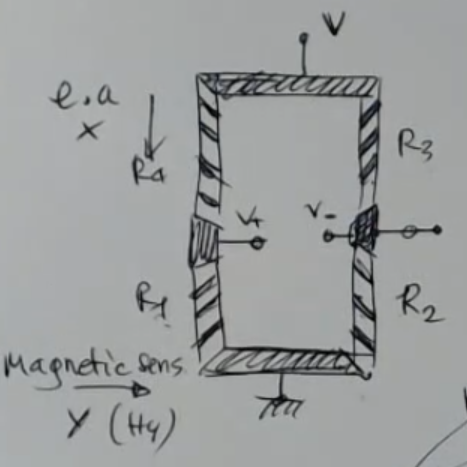 V
e.a
x
R4
R3
V+
V-
R1
R2
Magnetic sens.
Y (Hy)